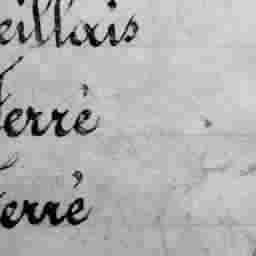 eillais
Ferré
Ferré